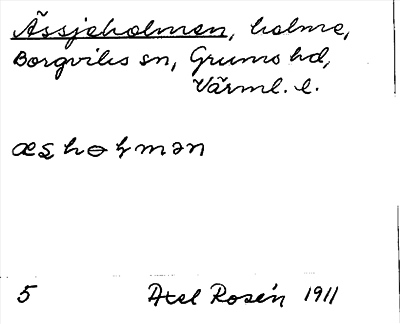 Ässjeholmen, holme,
Borgviks sn, Grums hd,
Värml. l.
5 Axel Rosén 1911